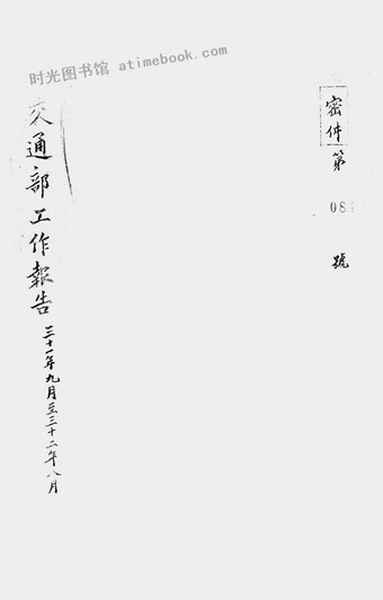 时光图书馆 atimebook.com
密件第 08 號
交通部工作報告 三十一年九月至三十二年八月